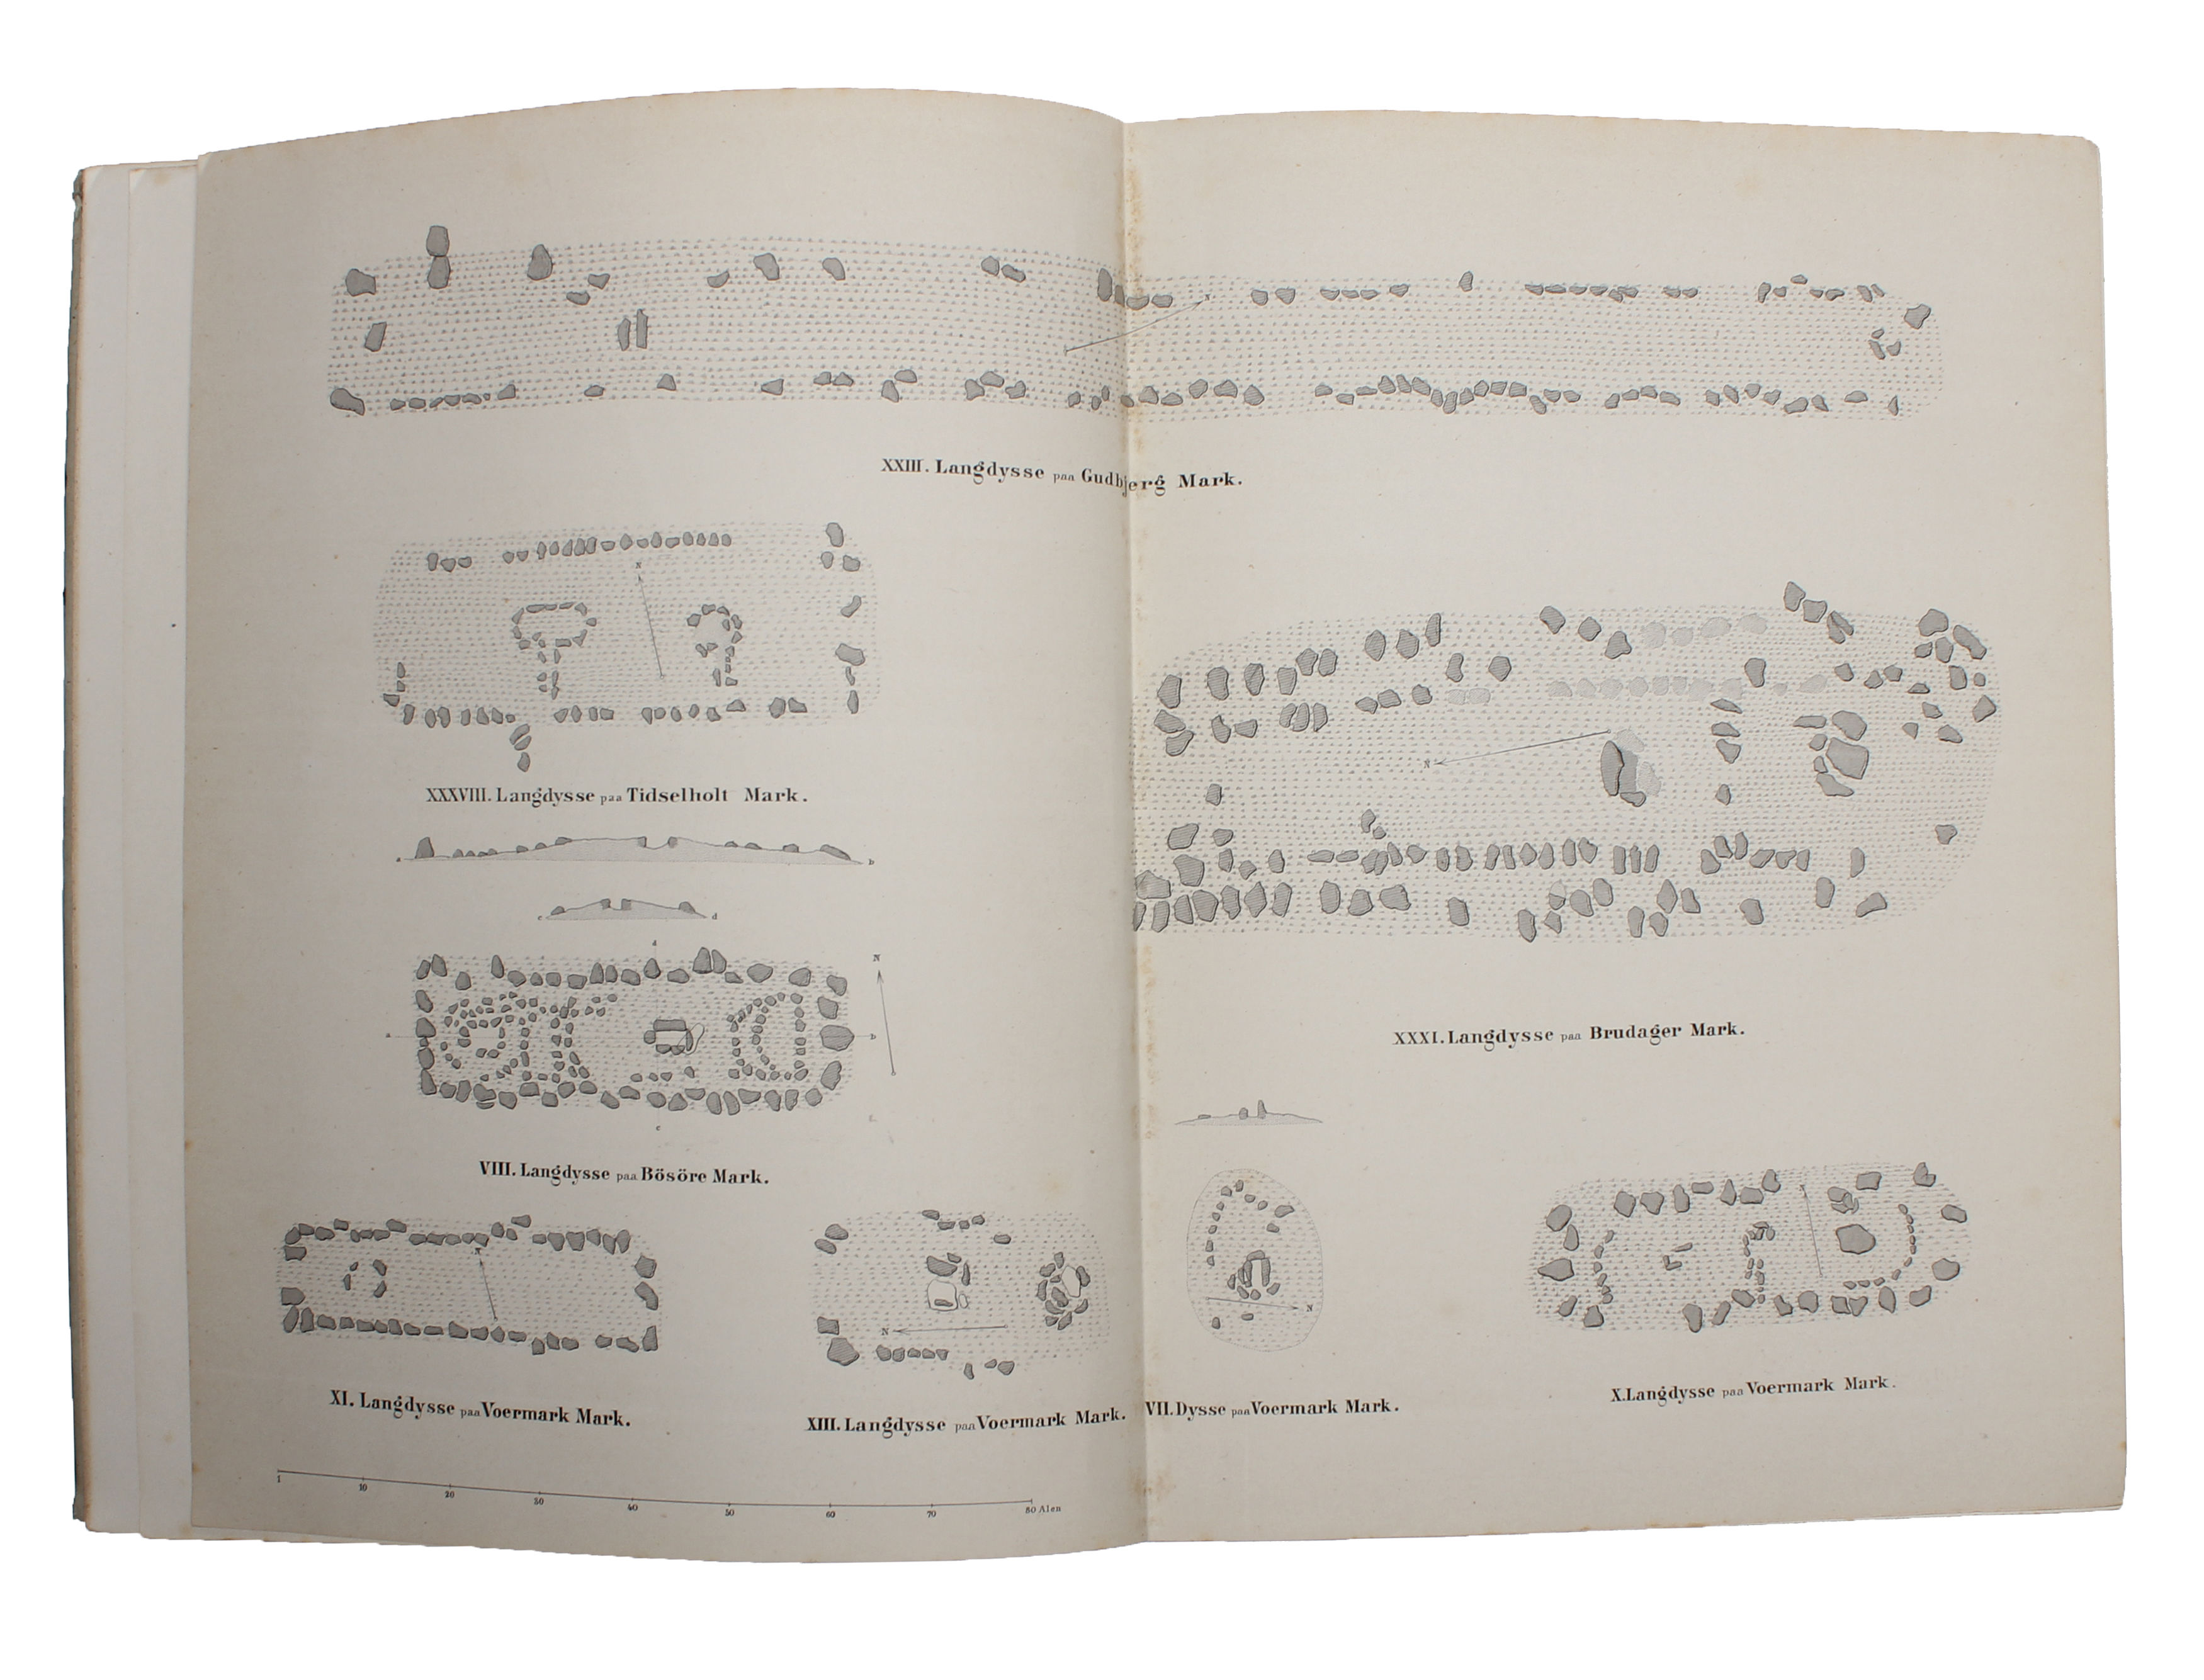 XXIII. Langdysse paa Gudbjerg Mark.
N
XXXVIII. Langdysse paa Tidselholt Mark.
a b
c d
N
XXXI. Langdysse paa Brudager Mark.
d
N
a b
c
VIII. Langdysse paa Bösöre Mark.
N
N
XI. Langdysse paa Voermark Mark.
XIII. Langdysse paa Voermark Mark.
VII. Dysse paa Voermark Mark.
X. Langdysse paa Voermark Mark.
1 10 20 30 40 50 60 70 80 Alen